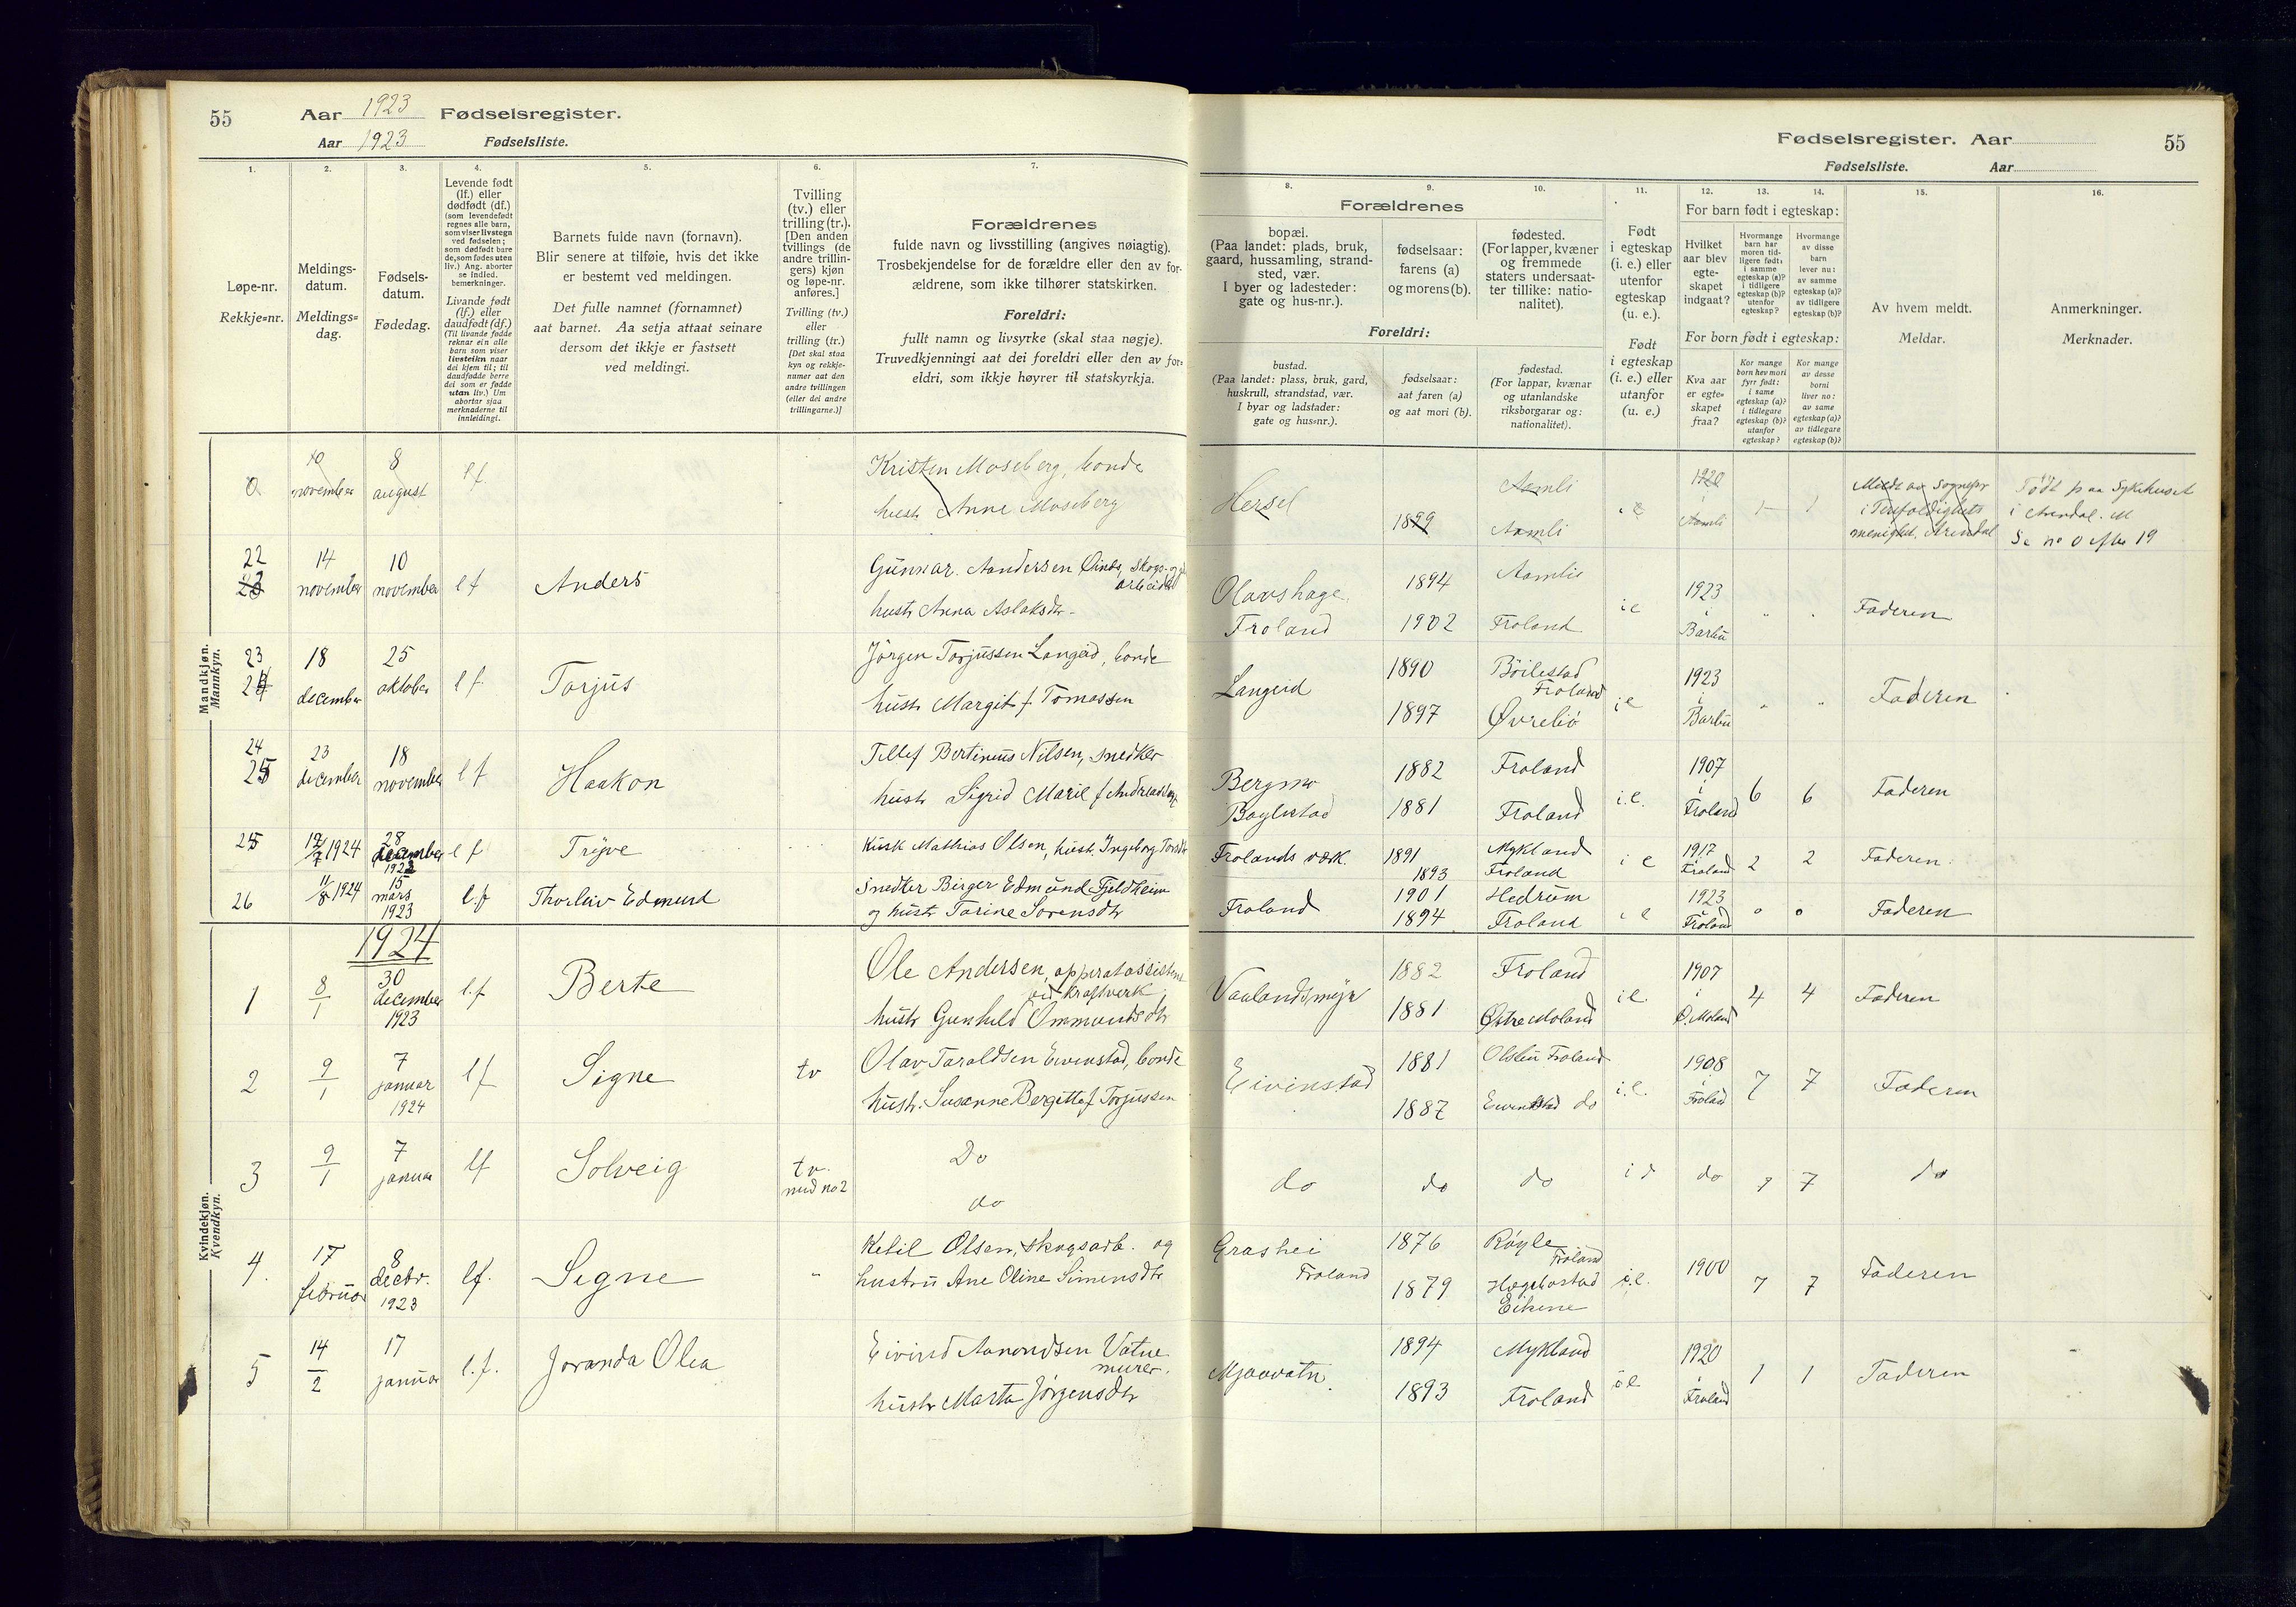 55
Aar 1923 Fødselsregister.
Aar 1923 Fødselsliste.
1.
2.
3.
4.
5.
6.
7.
Løpe-nr.
Rekkje=nr.
Meldings-
datum.
Meldings=
dag.
Fødsels-
datum.
Fødedag.
Levende født
(lf.) eller
dødfødt (df.)
(som levendefødt
regnes alle barn,
som viser livstegn
ved fødselen;
som dødfødt bare
de, som fødes uten
liv.) Ang. aborter
se indled.
bemerkninger.
Livande født
(lf.) eller
daudfødt (df.)
(Til livande fødde
reknar ein alle
barn som viser
livsteikn naar
dei kjem til; til
daudfødde berre
dei som er fødde
utan liv.) Um
abortar sjaa
merknaderne til
innleidingi.
Barnets fulde navn (fornavn).
Blir senere at tilføie, hvis det ikke
er bestemt ved meldingen.
Det fulle namnet (fornamnet)
aat barnet. Aa setja attaat seinare
dersom det ikkje er fastsett
ved meldingi.
Tvilling
(tv.) eller
trilling (tr.).
[Den anden
tvillings (de
andre trillin-
gers) kjøn
og løpe-nr.
anføres.]
Tvilling (tv.)
eller
trilling (tr.)
[Det skal staa
kyn og rekkje-
numer aat den
andre tvillingen
(eller dei andre
trillingarne.)]
Forældrenes
fulde navn og livsstilling (angives nøiagtig).
Trosbekjendelse for de forældre eller den av for-
ældrene, som ikke tilhører statskirken.
Foreldri:
fullt namn og livsyrke (skal staa nøgje).
Truvedkjenningi aat dei foreldri eller den av for-
eldri, som ikkje høyrer til statskyrkja.
Mandkjøn.
Mannkyn.
0 10 november 8 august l f Kristen Moseberg, bonde
hustr Anne Moseberg
22 14 november 10 november l f Anders Gunnar Aandersen
arbeider
hustr Anna Aslaksdtr
23 18 december 25 oktober l f Torjus Jørgen Torjussen Langeid, bonde
hustr Margit f Tomassen
24 23 december 18 november l f Haakon Tellef Bertinius Nilsen, snedker
hustr Sigrid Marie f
25 1924 28 december l f Trygve Kusk Mathias Olsen, hustr Ingeborg
26 11/8 1924 15 mars 1923 l.f Thorleiv Edmund Snedker Birger Edmund Fjeldheim
og hustr Torine Sorensdtr
1924
Kvindekjøn.
Kvendkyn.
1 8/1 30 december 1923 l.f Berte Ole Andersen, apparatassistent
ved kraftverk
hustr Gunhild Ommundsdtr
2 9/1 7 januar 1924 l f Signe tv Olav Taraldsen Eivenstad, bonde
hustr. Susanne Bergitte f Torjussen
3 9/1 7 januar lf Solveig tv. med no 2 Do
do
4. 17 februar 8 decbr. 1923 lf. Signe " Ketil Olsen, skogsarb. og
hustru Ane Oline Simensdtr
5 14/2 17 januar l.f. Joranda Olea Eivind Aanondsen Vatne
murer.
hustr Marta Jørgensdtr
Fødselsregister. Aar
55
Fødselsliste. Aar
8.
9.
10.
11.
12.
13.
14.
15.
16.
Forældrenes
bopæl.
(Paa landet: plads, bruk,
gaard, hussamling, strand-
sted, vær.
I byer og ladesteder:
gate og hus-nr.).
fødselsaar:
farens (a)
og morens (b).
fødested.
(For lapper, kvæner
og fremmede
staters undersaat-
ter tillike: natio-
nalitet).
Foreldri:
bustad.
(Paa landet: plass, bruk, gard,
huskrull, strandstad, vær.
I byar og ladstader:
gate og hus=nr.).
fødselsaar:
aat faren (a)
og aat mori (b).
fødestad.
(For lappar, kvænar
og utanlandske
riksborgarar og:
nationalitet).
Født
i egteskap
(i. e.) eller
utenfor
egteskap
(u. e.).
Født
i egteskap
(i. e.) eller
utanfor
(u. e.)
For barn født i egteskap:
Hvilket
aar blev
egte-
skapet
indgaat?
Hvormange
barn har
moren tid-
ligere født:
i samme
egteskap (a)?
i tidligere
egteskap (b)?
utenfor
egteskap?
Hvormange
av disse
barn
lever nu:
av samme
egteskap (a)?
av tidligere
egteskap (b)?
For born født i egteskap:
Kva aar
er egte=
skapet
fraa?
Kor mange
born hev mori
fyrr født:
i same
egteskap (a)?
i tidlegare
egteskap (b)?
utanfor
egteskap?
Kor mange
av desse
borni
liver no:
av same
egteskap (a)?
av tidlegare
egteskap (b)?
Av hvem meldt.
Meldar.
Anmerkninger.
Merknader.
Hersel 1899 Aamli
Aamli 1920 i Aamli 1 1 Meldt av Sognepr
i Trefoldighets
menighet. Arendal Født paa Sykehuset
i Arendal.
Se no 0 efter 19
Olavshage
Froland 1894
1902 Aamli
Froland i e 1923 i Barbu " " Faderen
Langeid 1890
1897 Bøilestad
Froland
Øvrebø i e 1923 i Barbu " " Faderen
Bergmo
Boylestad 1882
1881 Froland
Froland i.e. 1907 i Froland 6 6 Faderen
Frolands verk. 1891
1893 Mykland
Froland i e 1917 Froland 2 2 Faderen
Froland 1901
1894 Hedrum
Froland i e 1923 Froland 0 0 Faderen
Vaalandsmyr 1882
1881 Froland
Østre Moland i e. 1907 i Ø. Moland 4 4 Faderen
Eivinstad 1881
1887 Froland
do i.e. 1908 i Froland 7 7 Faderen
do do do do 7 7 do
Grashei
Froland 1876
1879 Froland
Hægebostad
Eikene i.e. 1900 7 7 Faderen
Mjaavatn 1894
1893 Mykland
Froland i e 1920 i Froland 1 1 Faderen